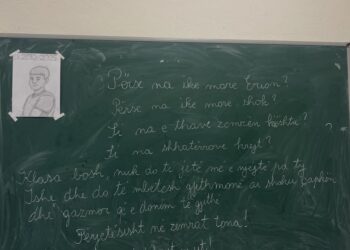 Përse na ike more Erion?
Përse na ike more shok?
Ti na e thave zemrën kështu?
Ti na shkatërrove krejt?
Klasa bosh, nuk do të jetë me e njejtë pa ty
Ishe dhe do të mbetesh gjithmonë ai shoku
dhe gazmor që e donim të gjithë
Përjetësisht në zemrat tona!